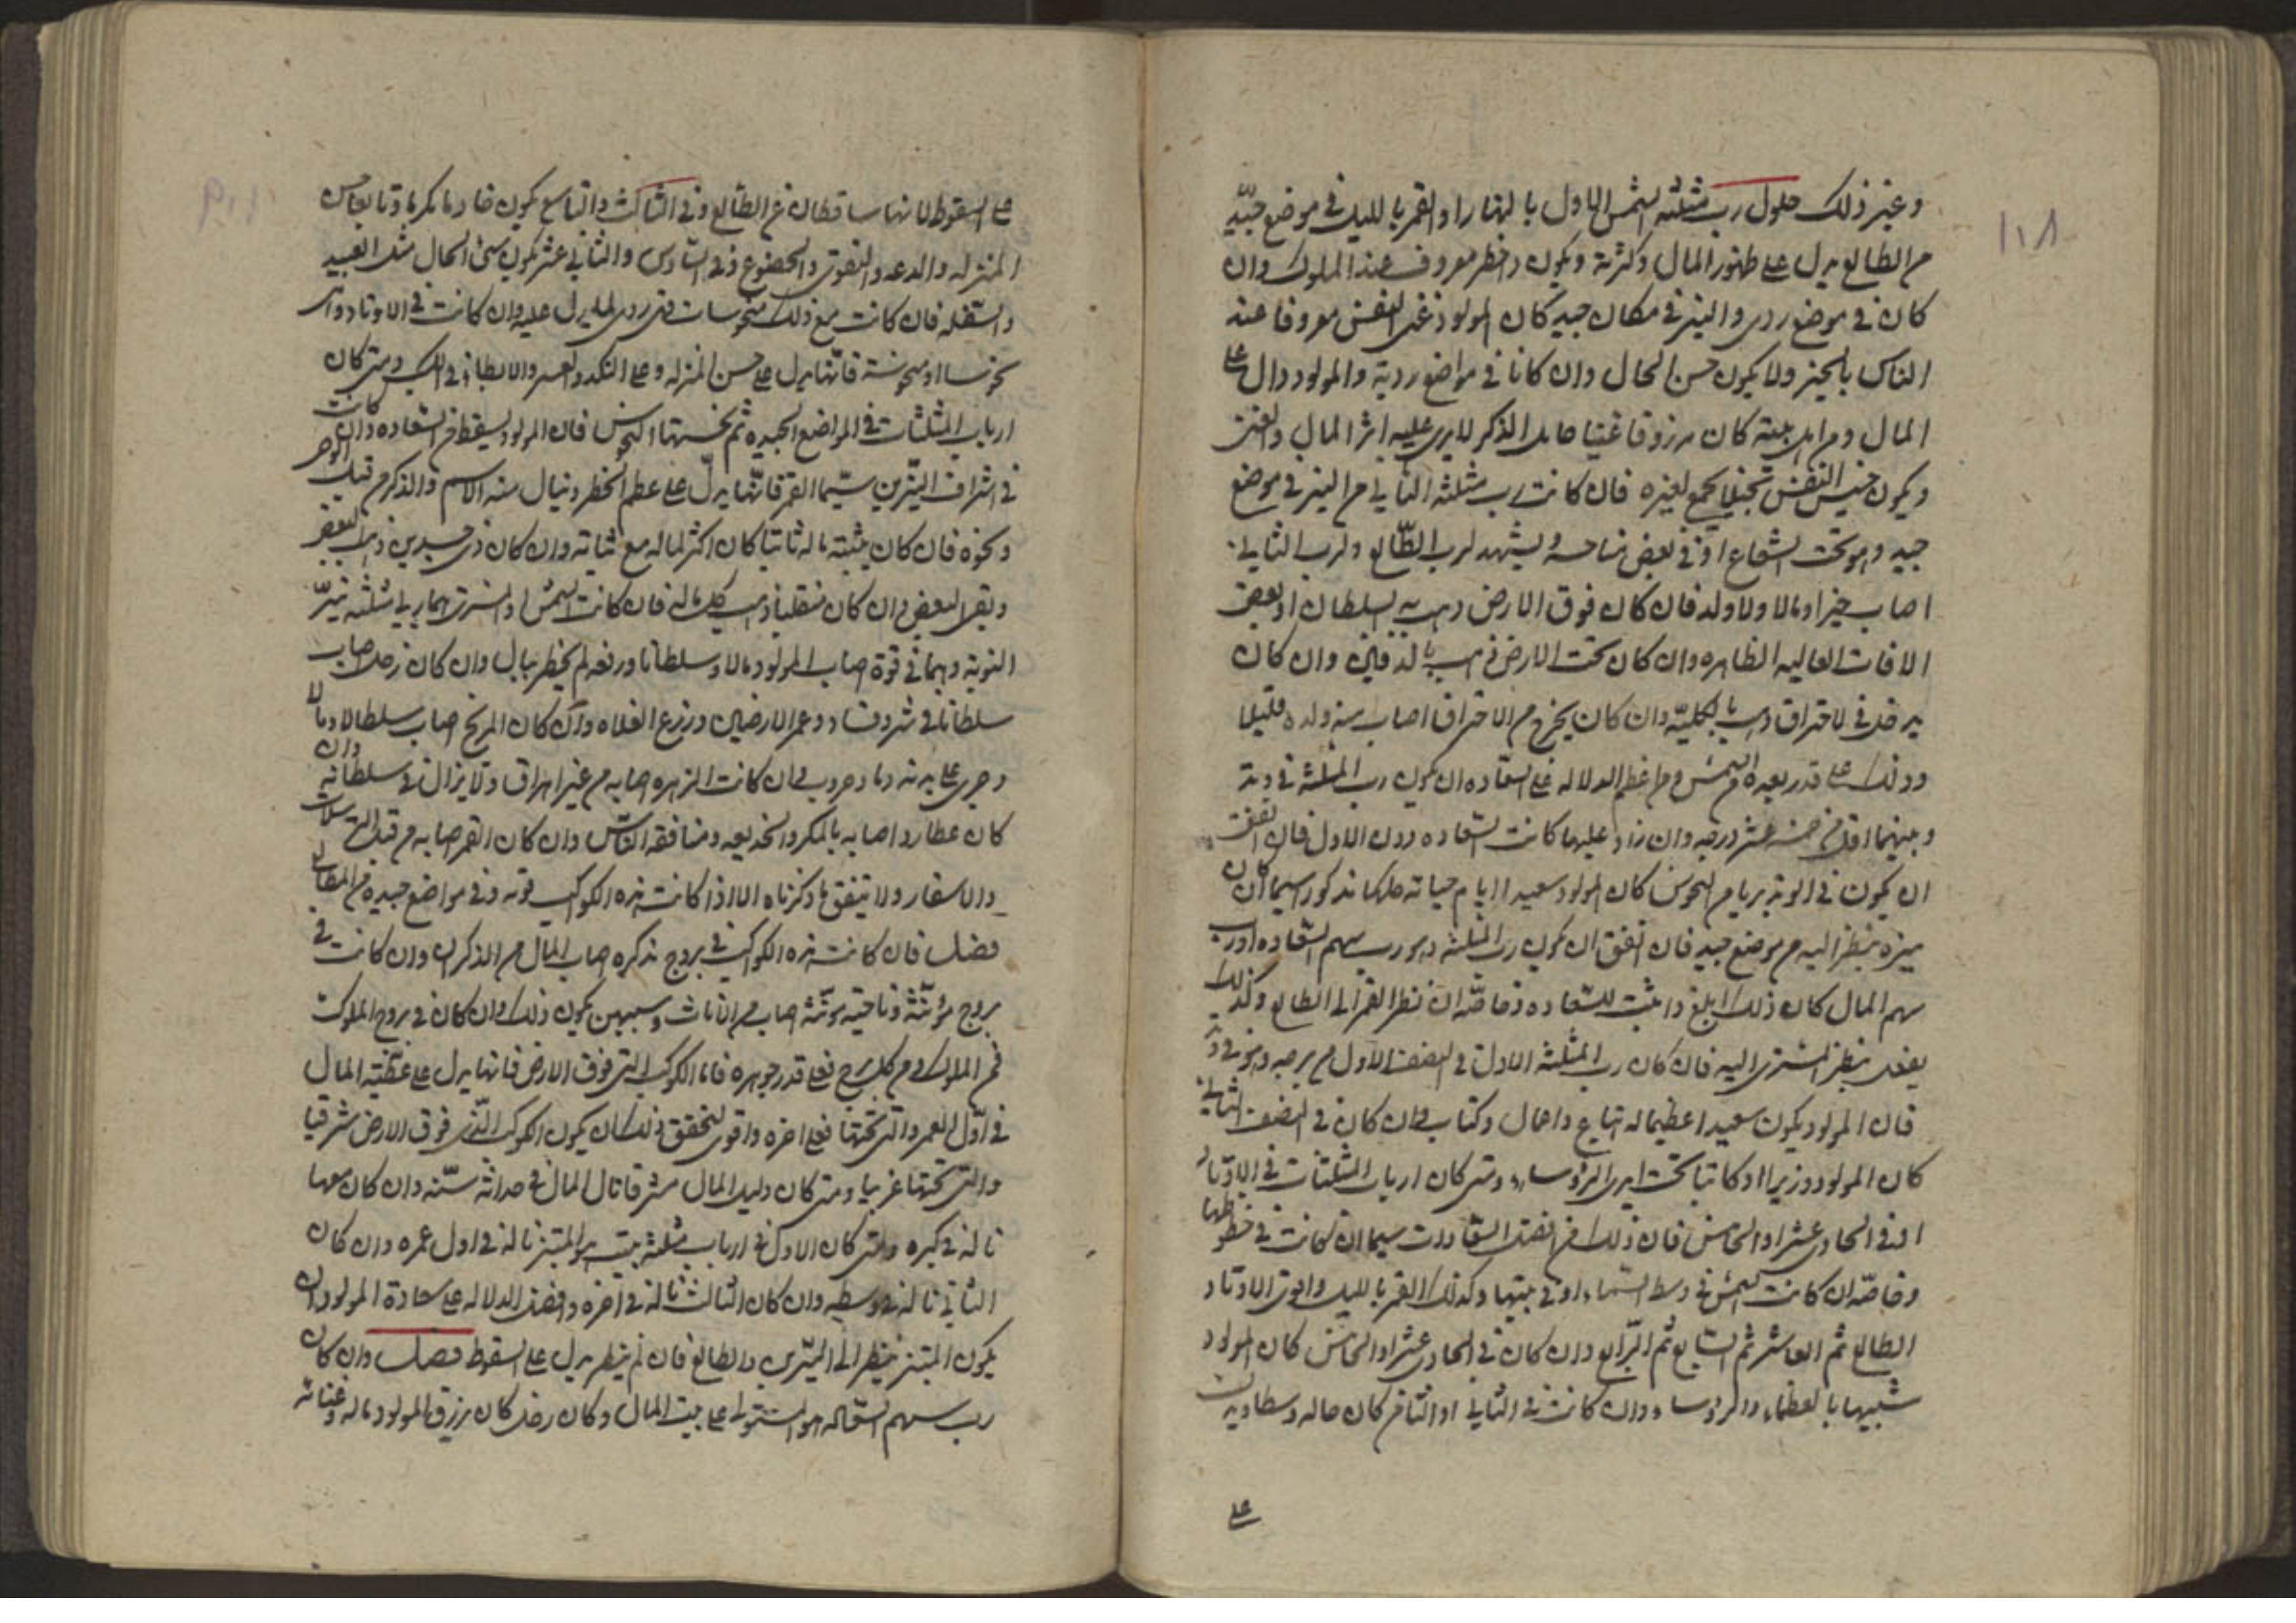 وغير ذلك حلول رب مثلثه الشمس الاول بالنهار او القمر بالليل في موضع جيد
من الطالع يدل على ظهور المال وكثرته ويكون ذا خطر معروف عند الملوك وان
كان في موضع ردى والنير في مكان جيد كان المولود غنى النفس معروفا عند
الناس بالخير ولا يكون حسن الحال وان كانا في مواضع ردية والمولود دال على
المال ومن اهل بيته كان مرزوقا غنيا خامل الذكر لا يرى عليه اثر المال والغنى
ويكون خسيس النفس بخيلا يجمع لغيره فان كانت رب مثلثه الثاني من النير في موضع
جيد وهو تحت الشعاع او في بعض مناحسه ويشهد لرب الطالع ولرب الثاني
اصاب خيرا ومالا وولد فان كان فوق الارض ذهب به السلطان او بعض
الافات العاليه الظاهره وان كان تحت الارض ذهب بالدفين وان كان
يدخل في الاحتراق ذهب بالكلية وان كان يخرج من الاحتراق اصاب منه ولده قليلا
وذلك على قدر بعده من الشمس ومن اعظم الدلاله على السعاده ان يكون رب المثلثه في وتد
وبينهما اقل من خمسه عشر درجه وان زاد عليها كانت السعاده دون الاول فان اتفق
ان يكون في الوتد بريا من النحوس كان المولود سعيدا ايام حياته كلها مذكور سيما ان كان
ينظر اليه من موضع جيد فان اتفق ان يكون رب المثلثه هو رب سهم السعاده او رب
سهم المال كان ذلك ابلغ واثبت للسعاده وخاصة ان نظر القمر الى الطالع وكذلك
يفعل بنظر المشترى اليه فان كان رب المثلثه الاول في النصف الاول من برجه وهو في وتد
فان المولود يكون سعيدا عظيما له اتباع واعمال وكتاب وان كان في النصف الثاني
كان المولود وزيرا او كاتبا تحت ايدى الرؤساء ومتى كان ارباب المثلثات في الاوتاد
او في الحادى عشر او الخامس فان ذلك من افضل السعادات سيما ان كانت في حظوظها
وخاصة ان كانت الشمس في وسط السماء او في بيتها وكذلك القمر بالليل واقوى الاوتاد
الطالع ثم العاشر ثم السابع ثم الرابع وان كان في الحادى عشر او الخامس كان المولود
شبيها بالعظماء والرؤساء وان كانت في الثاني او الثامن كان حاله وسطا ويدل
على
على السقوط لانها ساقطان عن الطالع وفي الثالث والتاسع يكون خادما مكرما وتابعا حسن
المنزله والدعه والتقوى والخضوع وفي السادس والثاني عشر يكون سئ الحال مثل العبيد
والسفله فان كانت مع ذلك منحوسات فهى ردى لما يدل عليه وان كانت في الاوتاد وهى
نحوسا او منحوسة فانها يدل على حسن المنزله وعلى النكد والعسر والابطاء في الكسب ومتى كان
ارباب المثلثات في المواضع الجيده ثم نحستها النحوس فان المولود يسقط من السعاده وان كانت
في اشراف النيرين سيما القمر فانها يدل على عظم الخطر وينال منه الاسم والذكر من قبل
ونحوه فان كان بيته ماله ثابتا كان اكثر لماله مع ثباته وان كان ذى جسدين ذهب البعض
وبقى البعض وان كان منقلبا ذهب كل ماله فان كانت الشمس او المشترى هما ربى مثلثه نير
النوبه وهما في قوة اصاب المولود مالا وسلطانا ورفعه لم يخطر ببال وان كان زحل اصاب
سلطانا في شر وفساد وعمر الارضين وزرع الغلاه وان كان المريخ اصاب سلطانا ومالا
وجرى على يديه دما وحروب وان كانت الزهره اصابه من غير اهراق ولا يزال في سلطانه وان
كان عطارد اصابه بالمكر والخديعه ومنافقه الناس وان كان القمر اصابه من قبل
والاسفار ولا يتفق ما ذكرناه الا اذا كانت هذه الكواكب قويه وفي مواضع جيده
فصل فان كانت هذه الكواكب في بروج مذكره اصاب المال من الذكران وان كانت في
بروج مؤنثة وناحية مؤنثة اصاب من الاناث وبسببهن يكون ذلك وان كان في بروج الملوك
فمن الملوك ومن كل برج فعلى قدر جوهره فاما الكوكب التى فوق الارض فانها يدل على عطية المال
في اول العمر والتى تحتها فعلى اخره واقوى لتحقق ذلك ان يكون الكوكب الذى فوق الارض شرقيا
والتى تحتها غربيا ومتى كان دليل المال مشرقا نال المال في حداثة سنه وان كان معها
ناله في كبره ومتى كان الاول في ارباب مثلثه بيت هو المبتز ناله في اول عمره وان كان
الثاني ناله في وسطه وان كان الثالث ناله في اخره وافضل الدلاله على سعادة المولود ان
يكون المبتز ينظر الى النيرين والطالع فان لم ينظر يدل على السقوط فصل وان كان
رب سهم السعاده هو المستولى على بيت المال وكان زحل كان يرزق المولود ماله وغنائه